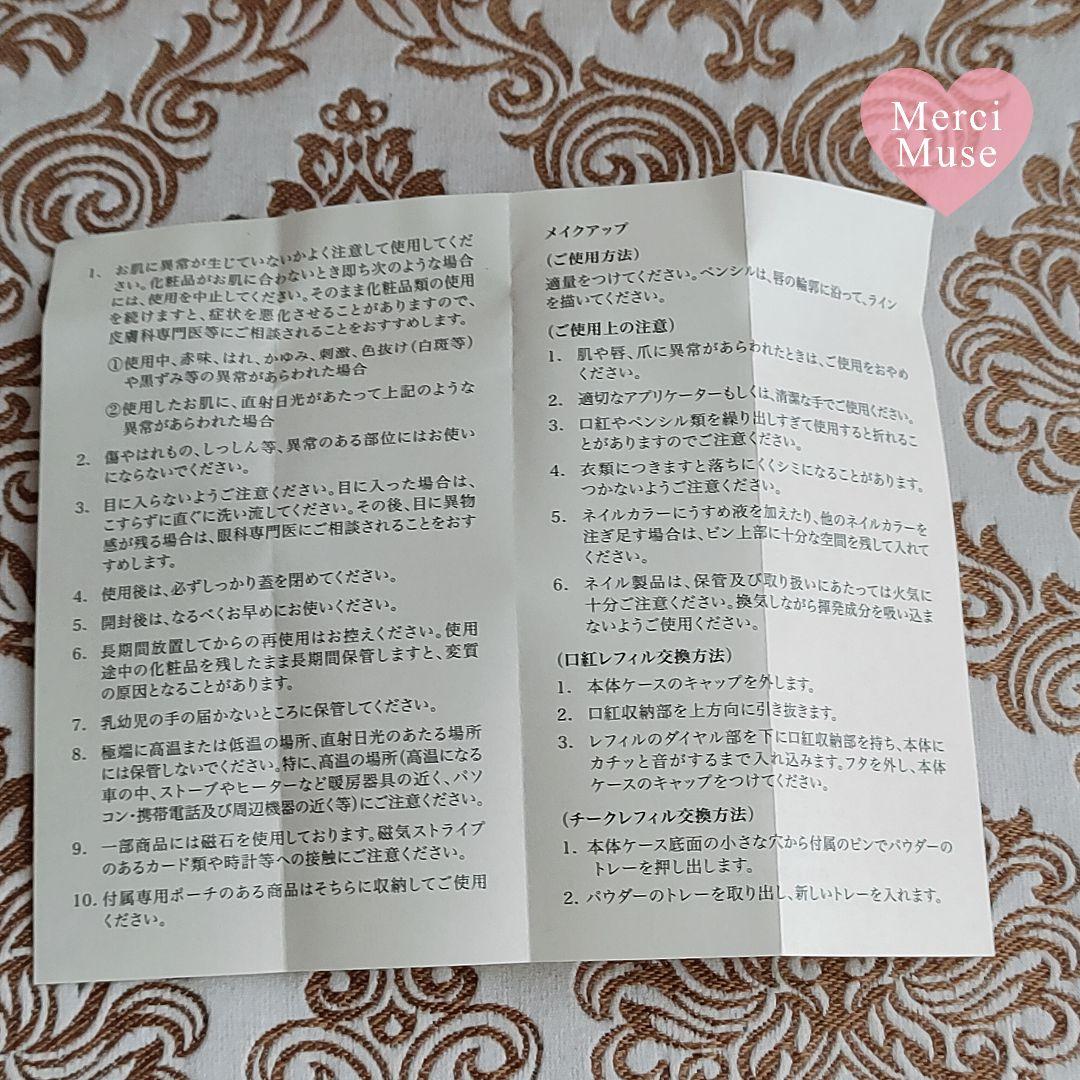 Merci
Muse
1. お肌に異常が生じていないかよく注意して使用してくだ
さい。化粧品がお肌に合わないとき即ち次のような場合
には、使用を中止してください。そのまま化粧品類の使用
を続けますと、症状を悪化させることがありますので、
皮膚科専門医等にご相談されることをおすすめします。
①使用中、赤味、はれ、かゆみ、刺激、色抜け(白斑等)
や黒ずみ等の異常があらわれた場合
②使用したお肌に、直射日光があたって上記のような
異常があらわれた場合
2. 傷やはれもの、しっしん等、異常のある部位にはお使い
にならないでください。
3. 目に入らないようご注意ください。目に入った場合は、
こすらずに直ぐに洗い流してください。その後、目に異物
感が残る場合は、眼科専門医にご相談されることをおす
すめします。
4. 使用後は、必ずしっかり蓋を閉めてください。
5. 開封後は、なるべくお早めにお使いください。
6. 長期間放置してからの再使用はお控えください。使用
途中の化粧品を残したまま長期間保管しますと、変質
の原因となることがあります。
7. 乳幼児の手の届かないところに保管してください。
8. 極端に高温または低温の場所、直射日光のあたる場所
には保管しないでください。特に、高温の場所(高温になる
車の中、ストーブやヒーターなど暖房器具の近く、パソ
コン・携帯電話及び周辺機器の近く等)にご注意ください。
9. 一部商品には磁石を使用しております。磁気ストライプ
のあるカード類や時計等への接触にご注意ください。
10. 付属専用ポーチのある商品はそちらに収納してご使用
ください。
メイクアップ
(ご使用方法)
適量をつけてください。ペンシルは、唇の輪郭に沿って、ライン
を描いてください。
(ご使用上の注意)
1. 肌や唇、爪に異常があらわれたときは、ご使用をおやめ
ください。
2. 適切なアプリケーターもしくは、清潔な手でご使用ください。
3. 口紅やペンシル類を繰り出しすぎて使用すると折れるこ
とがありますのでご注意ください。
4. 衣類につきますと落ちにくくシミになることがあります。
つかないようご注意ください。
5. ネイルカラーにうすめ液を加えたり、他のネイルカラーを
注ぎ足す場合は、ビン上部に十分な空間を残して入れて
ください。
6. ネイル製品は、保管及び取り扱いにあたっては火気に
十分ご注意ください。換気しながら揮発成分を吸い込ま
ないようご使用ください。
(口紅レフィル交換方法)
1. 本体ケースのキャップを外します。
2. 口紅収納部を上方向に引き抜きます。
3. レフィルのダイヤル部を下に口紅収納部を持ち、本体に
カチッと音がするまで入れ込みます。フタを外し、本体
ケースのキャップをつけてください。
(チークレフィル交換方法)
1. 本体ケース底面の小さな穴から付属のピンでパウダーの
トレーを押し出します。
2. パウダーのトレーを取り出し、新しいトレーを入れます。